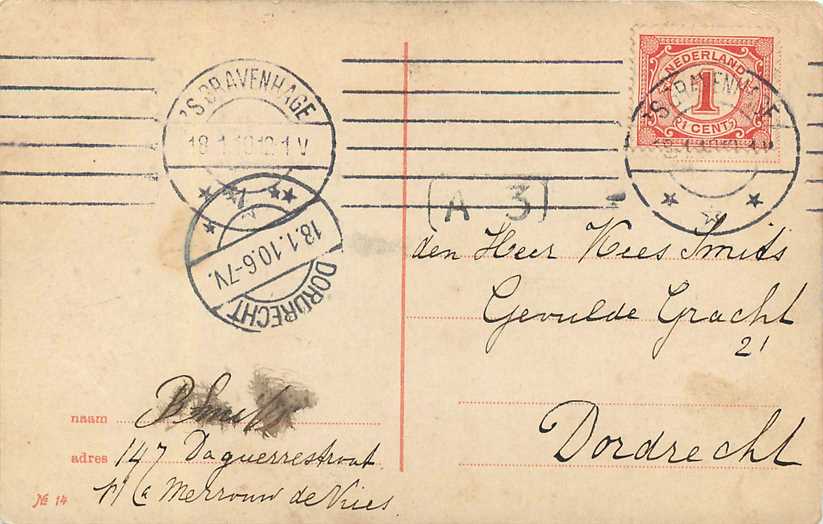 'S GRAVENHAGE
18.1.10 12-1 V
'S GRAVENHAGE
NEDERLAND
1
1 CENT
18.1.10.6-7V.
DORDRECHT
A 3
den Heer Kees Smits
Gevulde Gracht
21
Dordrecht
naam
P Smits
adres 147 Daguerrestraat
Mevrouw de Vries
№ 14